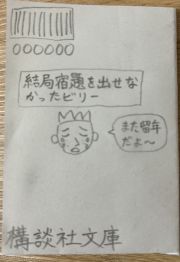 ○○○○○○
結局宿題を出せな
かったビリー
また留年
だよ～
構談社文庫